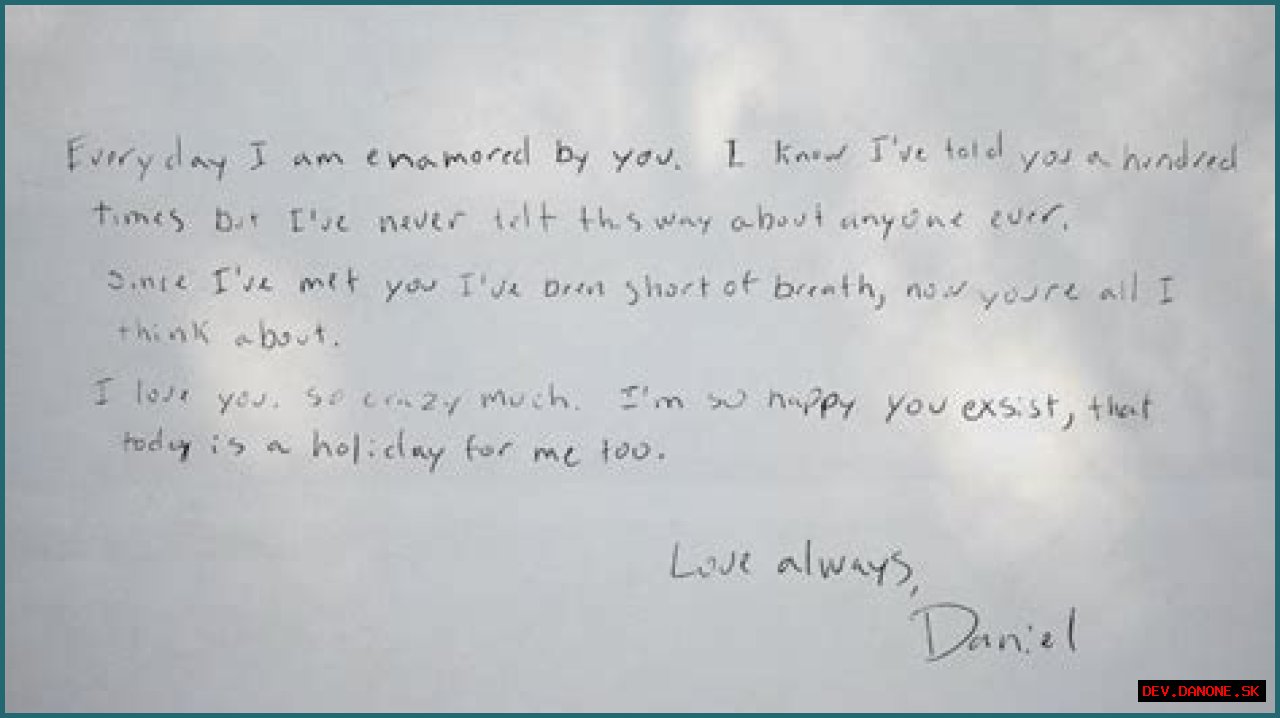 Everyday I am enamored by you. I know I've told you a hundred
times but I've never felt this way about anyone ever.
Since I've met you I've been short of breath, now you're all I
think about.
I love you. so crazy much. I'm so happy you exsist, that
today is a holiday for me too.
Love always,
Daniel
DEV.DANONE.SK